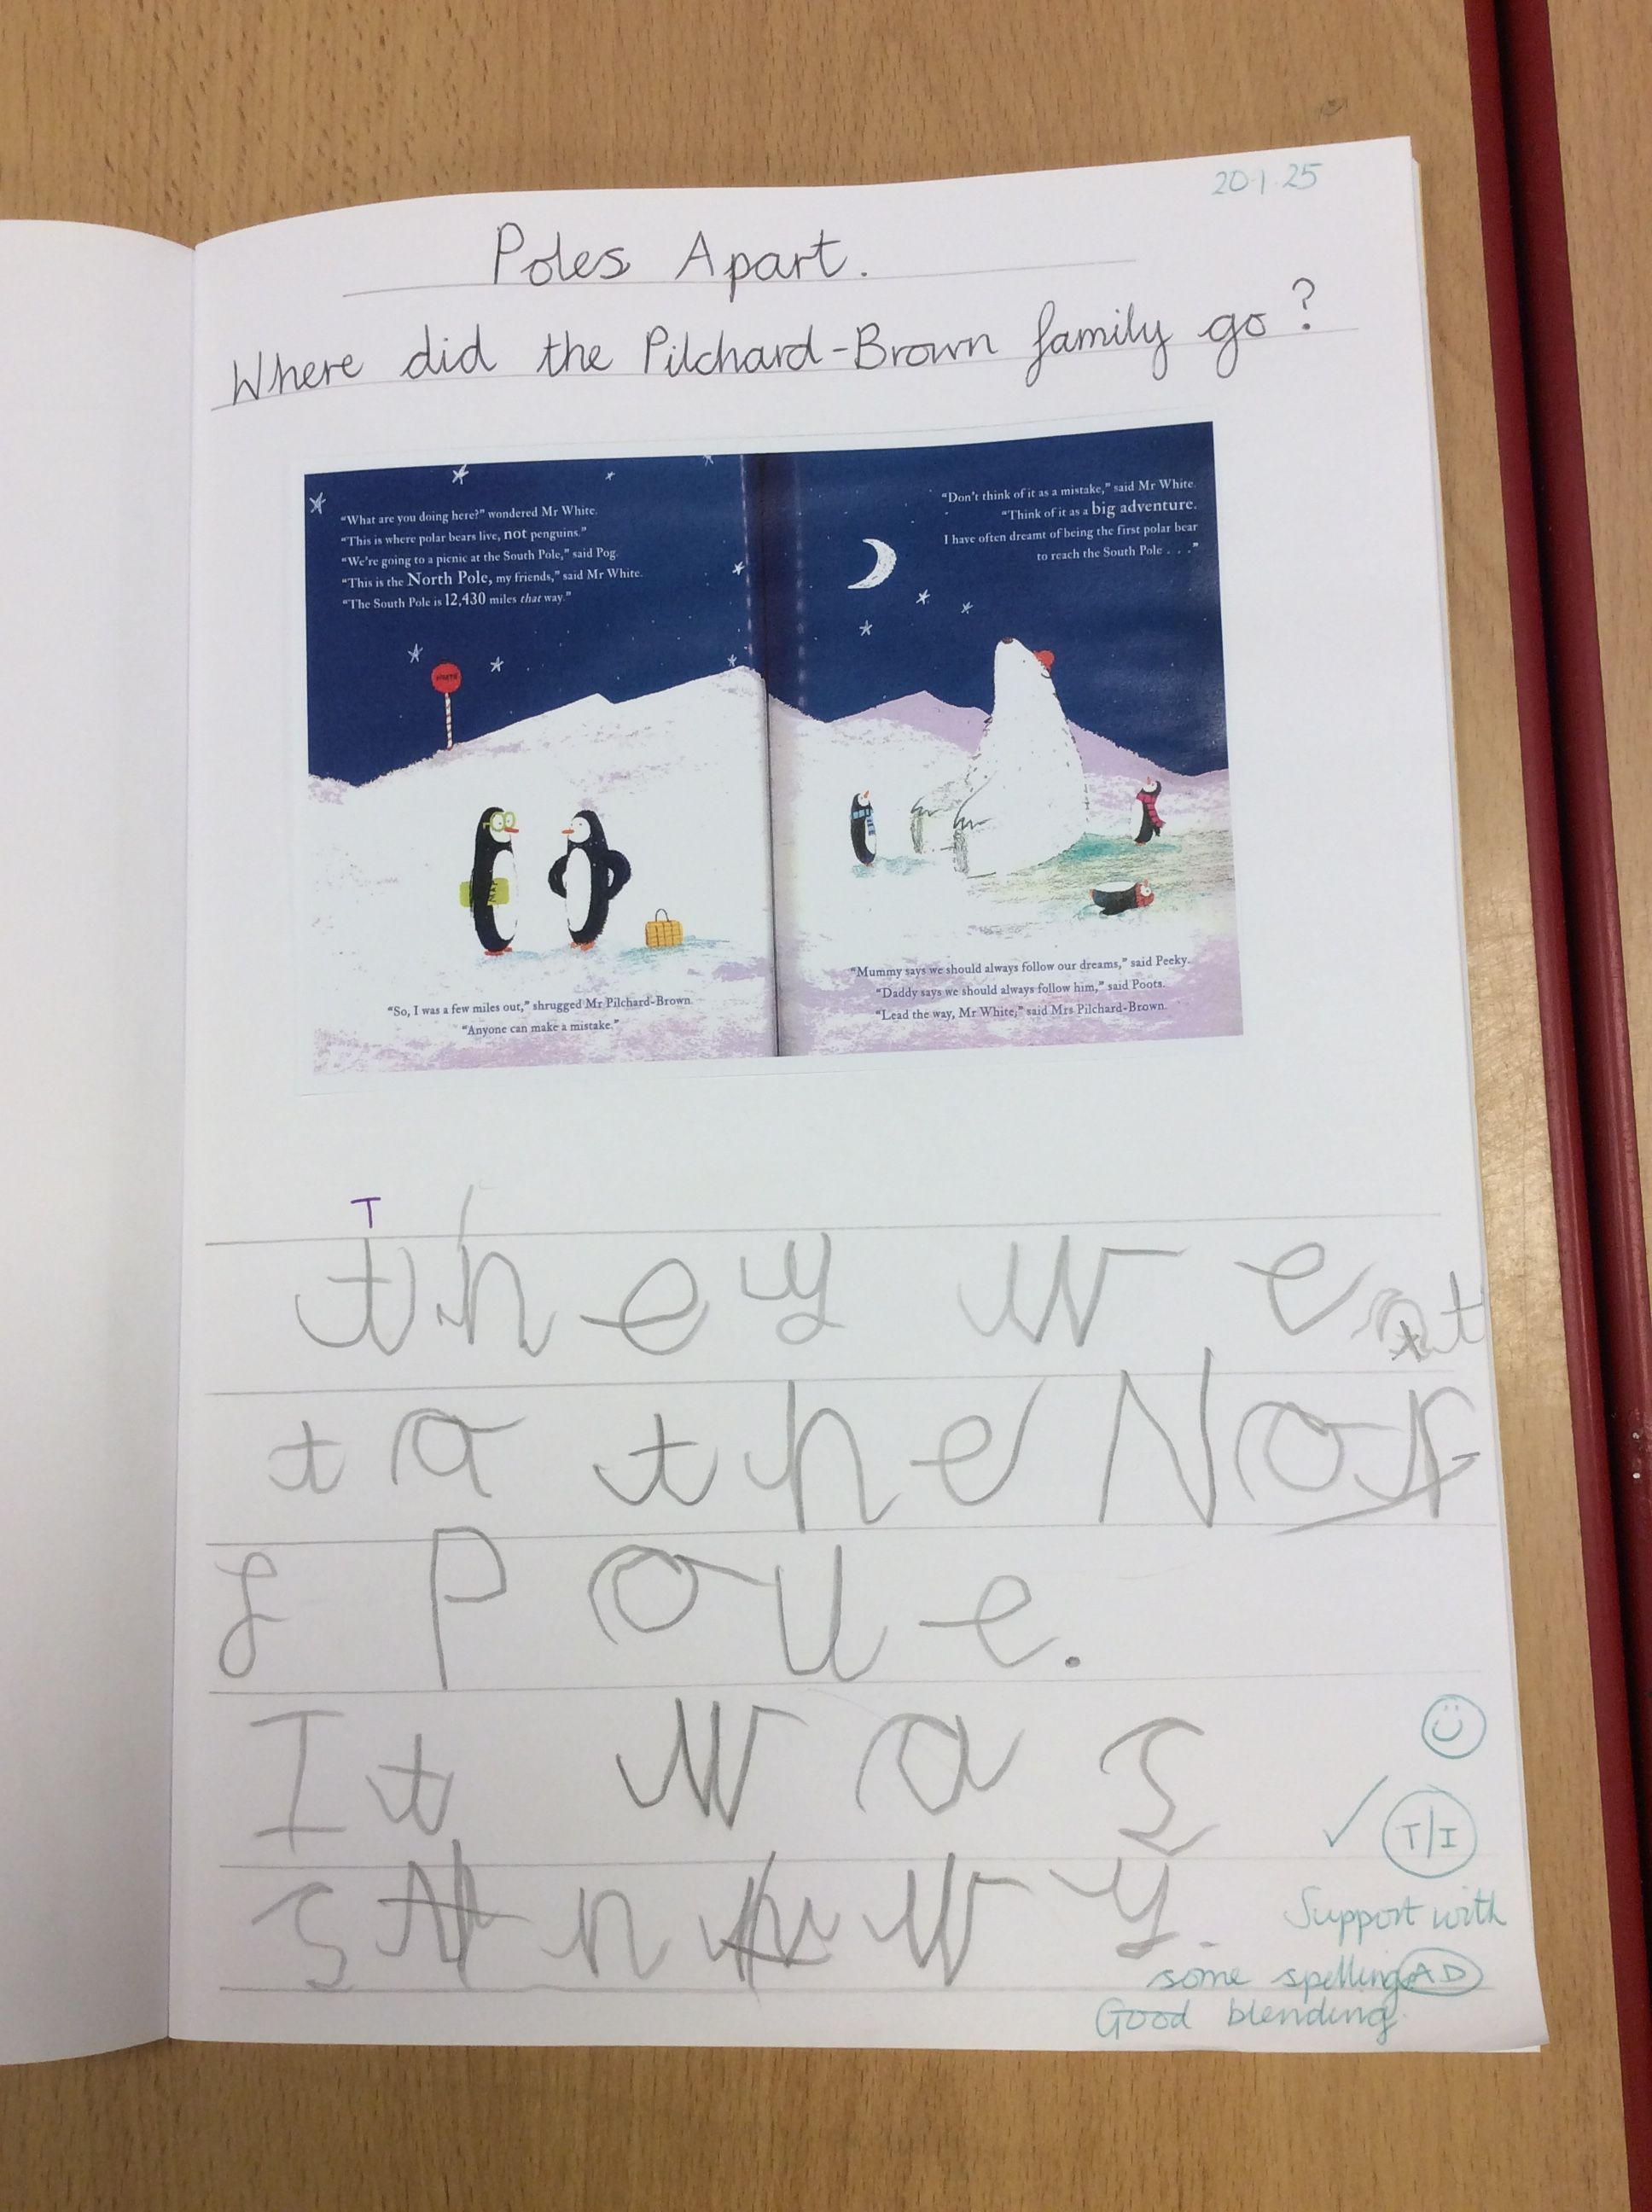 20.1.25
Poles Apart.
Where did the Pilchard-Brown family go?
"What are you doing here?" wondered Mr White.
"This is where polar bears live, not penguins."
"We're going to a picnic at the South Pole," said Pog.
"This is the North Pole, my friends," said Mr White.
"The South Pole is 12,430 miles that way."
"So, I was a few miles out," shrugged Mr Pilchard-Brown.
"Anyone can make a mistake."
"Don't think of it as a mistake," said Mr White.
"Think of it as a big adventure.
I have often dreamt of being the first polar bear
to reach the South Pole . . ."
"Mummy says we should always follow our dreams," said Peeky.
"Daddy says we should always follow him," said Poots.
"Lead the way, Mr White," said Mrs Pilchard-Brown.
T
they went
to the Nor
f Poue.
It was
☺
✓ T/I
Support with
some spelling AD
Good blending.